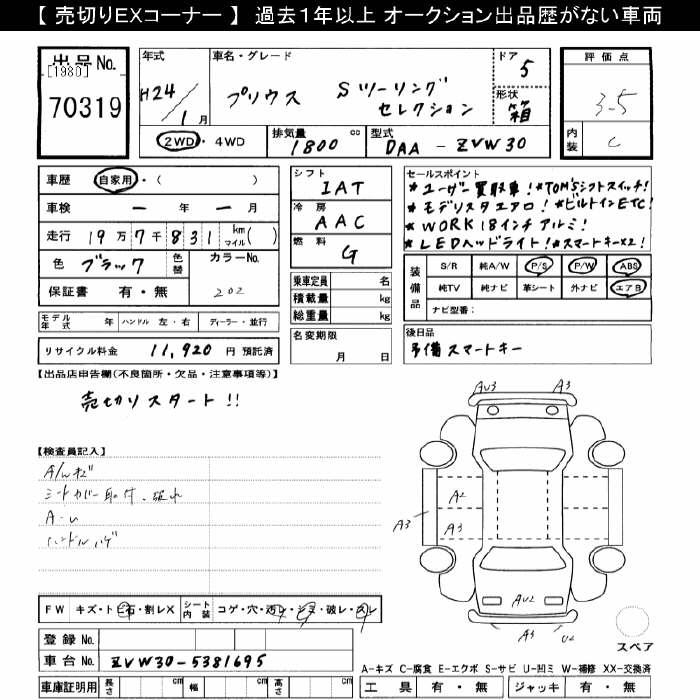 【 売切りEXコーナー 】 過去１年以上 オークション出品歴がない車両
出品No.
[1980]
70319
年式
H24/1月
車名・グレード
プリウス Sツーリング
セレクション
ドア
5
形状
箱
2WD・4WD
排気量
1800 cc
型式
DAA-ZVW30
評価点
3.5
内装
C
車歴 自家用・( )
車検 ー 年 ー 月
走行 19万7千831 km マイル( )
色 ブラック 色替
カラーNo.
202
保証書 有・無
モデル年式 年 ハンドル 左・右 ディーラー・並行
リサイクル料金 11,920 円 預託済
シフト
IAT
冷房
AAC
燃料
G
乗車定員 名
積載量 kg
総重量 kg
名変期限
月 日
セールスポイント
*ユーザー買取車!*TOM'Sシフトスイッチ!
*モデリスタエアロ!*ビルトインETC!
*WORK 18インチアルミ!
*LEDヘッドライト!*スマートキーX2!
装備品
S/R 純A/W P/S P/W ABS
純TV 純ナビ 革シート 外ナビ エアB
ナビ型番:
後日品
予備スマートキー
【出品店申告欄(不良箇所・欠品・注意事項等)】
売切りスタート!!
【検査員記入】
シートカバー取付、破れ
ハンドルハゲ
AU3 A3
A2
A3 A3
AU2
A3 U2
スペア
FW キズ・ト ビ石・割レX
シート内装 コゲ・穴・汚レ・シミ・破レ・スレ
登録No.
車台No. ZVW30-5381695
車庫証明用 長さ cm 幅 cm 高さ cm
A-キズ C-腐食 E-エクボ S-サビ U-凹ミ W-補修 XX-交換済
工具 有・無 ジャッキ 有・無